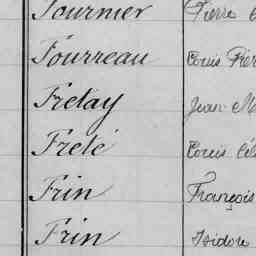 Fournier Pierre
Fourreau Louis Pier
Fretay Jean M
Freté Louis Cél
Frin François
Frin Isidore